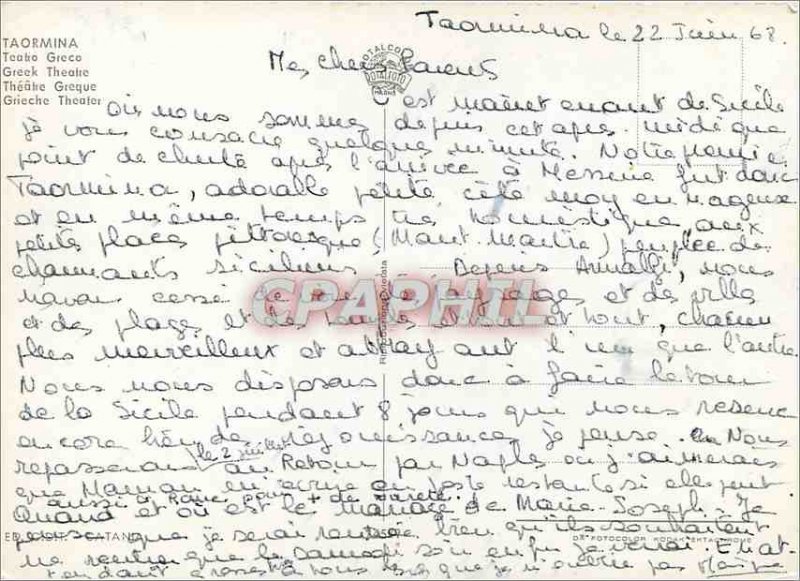 Taormina le 22 Juin 68.
TAORMINA
Teatro Greco
Greek Theatre
Théâtre Greque
Grieche Theater
Mes chers Parents
Où nous sommes est maintenant de Sicile
je vous consacre quelques minutes. depuis cet après-midi que
point de chute après l'arrivée à Messine fut donc
Taormina, adorable petite cité moyenâgeuse
et en même temps très touristique, aux
petites places pittoresques (Montmartre) peuplée de
charmants siciliens. Depuis Amalfi, nous
n'avons cessé de paysages et de villes
et des plages et des et tout, chacun
plus merveilleux et attrayant l'un que l'autre.
Nous nous disposons donc à faire le tour
de la Sicile pendant 8 jours qui nous réserve
encore bien de réjouissances je pense. Nous
le 2 juillet
repasserons au Retour par Naples où j'aimerais
que Maman m'écrive en poste restante si elle peut
aussi à Rome pour + de sûreté.
Quand et où est le mariage de Marie-Joseph. Je
pense que je serai rentrée bien qu'ils souhaitent
ne rentrer que le samedi soir enfin je verrai. En at-
tendant à vous tous que je n'oublie pas
CPARHIL
DA FOTOCOLOR KODAK EKTACHROME